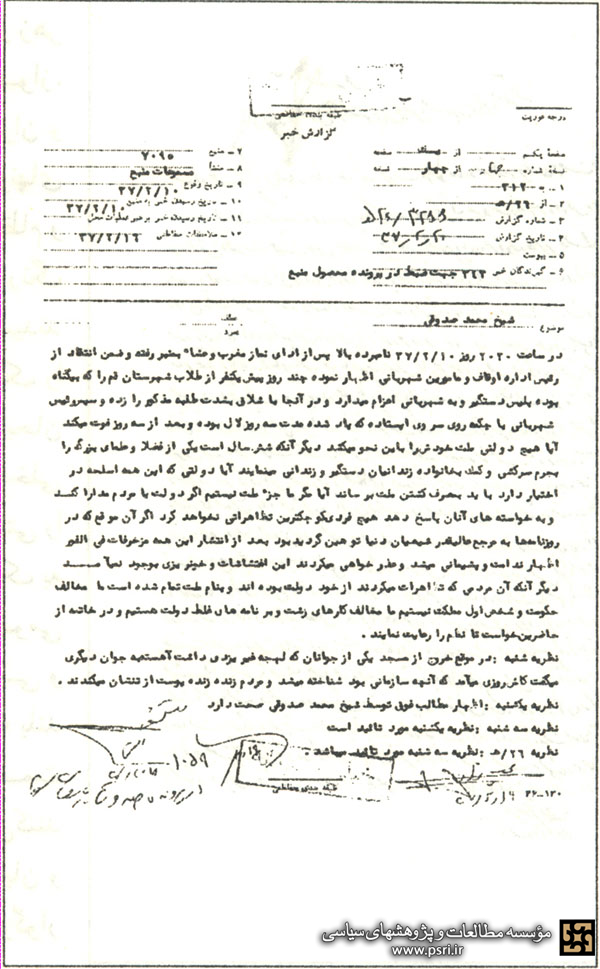 طبقه بندی حفاظتی
گزارش خبر
درجه فوریت
صفحه یکم از صفحه
نسخه شماره از چهار نسخه
۱ ـ به ۳۱۲
۲ ـ از ۲۶/ه‍
۳ ـ شماره گزارش
۴ ـ تاریخ گزارش
۵ ـ پیوست
۶ ـ گیرندگان خبر ۳۶۳ جهت ضبط در پرونده محصول منبع
۷ ـ منبع ۷۰۹۵
۸ ـ منشأ مسموعات منبع
۹ ـ تاریخ وقوع ۳۷/۲/۱۰
۱۰ ـ تاریخ رسیدن خبر به منبع ۳۷/۲/۱۰
۱۱ ـ تاریخ رسیدن خبر به رهبر عملیات محل
۱۲ ـ ملاحظات حفاظتی ۳۷/۲/۱۶
موضوع شیخ محمد صدوقی
در ساعت ۲۰۳۰ روز ۳۷/۲/۱۰ نامبرده بالا پس از ادای نماز مغرب و عشاء بمنبر رفته و ضمن انتقاد از
رئیس اداره اوقاف و مامورین شهربانی اظهار نموده چند روز پیش یکنفر از طلاب شهرستان قم را که بیگناه
بوده پلیس دستگیر و به شهربانی اعزام میدارد و در آنجا با شلاق بشدت طلبه مذکور را زده و سپس رئیس
شهربانی با چکمه روی سر وی ایستاده که یاد شده مدت سه روز لال بوده و بعد از سه روز فوت میکند
آیا هیچ دولتی ملت خودش را باین نحو میکشد دیگر آنکه شش سال است یکی از فضلا و علمای بزرگ را
بجرم سرکشی و کمک بخانواده زندانیان دستگیر و زندانی مینمایند آیا دولتی که این همه اسلحه در
اختیار دارد باید بمصرف کشتن ملت برساند آیا مگر ما جزء ملت نیستیم اگر دولت با مردم مدارا کند
و به خواسته های آنان پاسخ دهد هیچ فردی کوچکترین تظاهراتی نخواهد کرد اگر آن موقع که در
روزنامه‌ها به مرجع عالیقدر شیعیان دنیا توهین گردید بود بعد از انتشار این همه مزخرفات فی الفور
اظهار ندامت و پشیمانی میشد و عذر خواهی میکردند این اغتشاشات و خونریزی بوجود نمیآمد
دیگر آنکه آن مردمی که تظاهرات میکردند از خود دولت بوده اند و بنام ملت تمام شده است ما مخالف
حکومت و شخص اول مملکت نیستیم ما مخالف کارهای زشت و برنامه های غلط دولت هستیم و در خاتمه از
حاضرین خواست تا نظم را رعایت نمایند .
نظریه شنبه : در موقع خروج از مسجد یکی از جوانان که لهجه غیر یزدی داشت آهسته به جوان دیگری
میگفت کاش روزی میآمد که آنچه سازمانی بود شناخته میشد و مردم زنده زنده پوست از تنشان میکندند .
نظریه یکشنبه : اظهار مطالب فوق توسط شیخ محمد صدوقی صحت دارد
نظریه سه شنبه : نظریه یکشنبه مورد تائید است
نظریه ۲۶/ه‍ : نظریه سه شنبه مورد تائید میباشد
طبقه بندی حفاظتی
۲۶-۱۳۰
مؤسسه مطالعات و پژوهشهای سیاسی
www.psri.ir